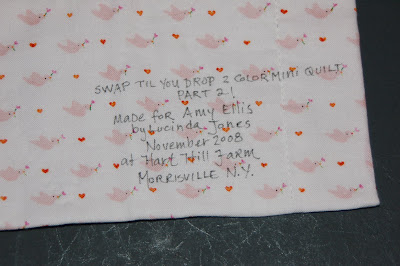 SWAP TIL YOU DROP 2 COLOR MINI QUILT
PART 2!
Made for Amy Ellis
by Lucinda Jones
November 2008
at Hart Hill Farm
MORRISVILLE N.Y.